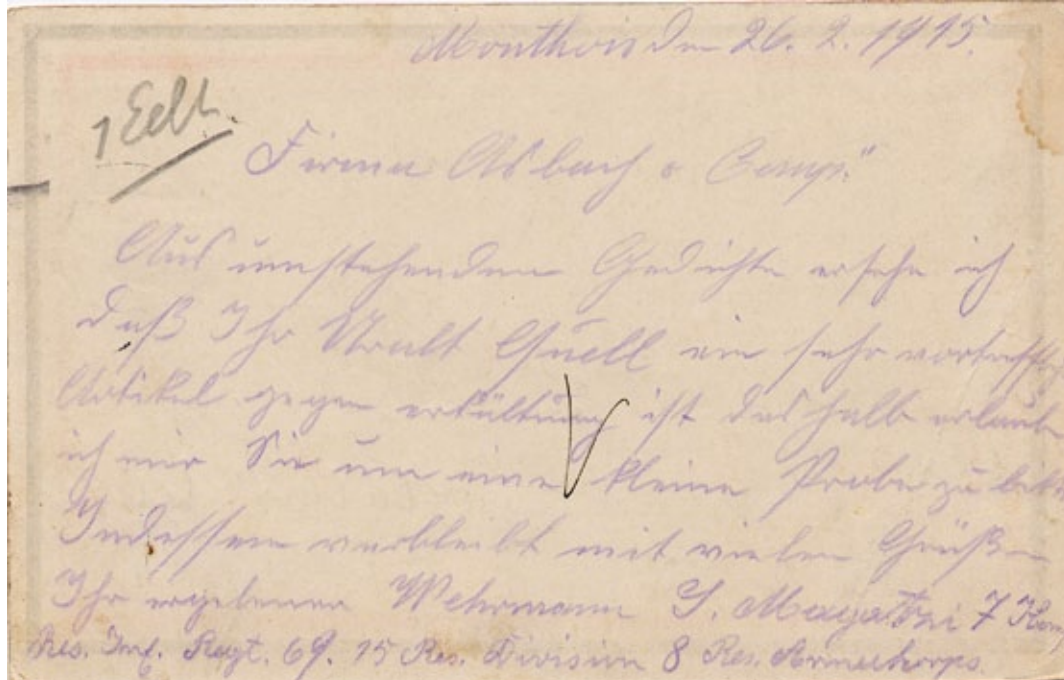 Monthois den 26. 2. 1915.
1 Echt.
Firma Asbach & Comp.
Aus umstehenden Gedichte ersehe ich
daß Ihr Uralt Quell ein sehr vortreffl
Artikel gegen erkältung ist deshalb erlaube
ich mir Sie um eine kleine Probe zu bit
Indessen verbleibt mit vielen Grüßen
Ihr ergebener Wehrmann J. 7 Kom
Res. Inf. Regt. 69. 15 Res. Division 8 Res. Armeekorps.